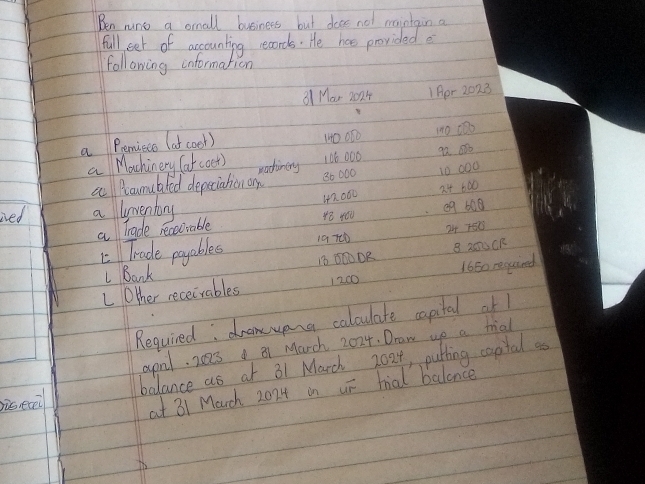 Ben runs a small business but does not maintain a
full set of accounting records. He has provided e
following information
31 Mar 2024 1 Apr 2023
a Premises (at cost) 140 000 140 000
a Machinery (at cost) 106 000
Accumulated depeciation on machinery 36 000 10 000
a Inventory 42000 24 600
a Trade receivable 48 400
Trade payables 19 700 24 750
L Bank 13 000 DR 8 200 CR
L Other receivables 1200 1650
Required : calculate capital at 1
april . 2023 & 31 March 2024. Draw up a trial
balance as at 31 March 2024, putting capital as
at 31 March 2024 in ur trial balance
ived